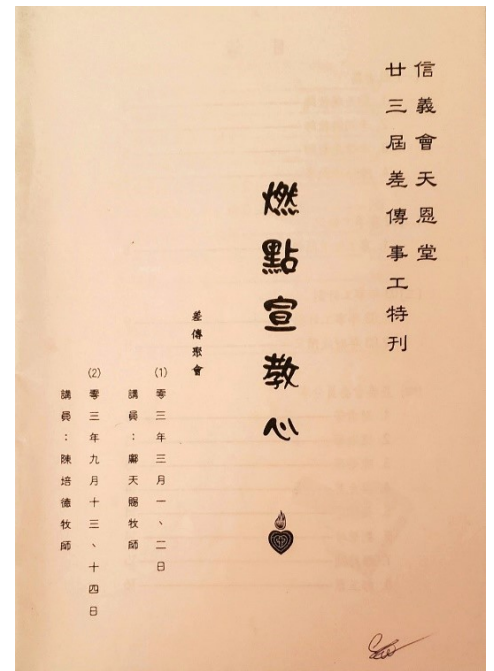 信義會天恩堂
廿三屆差傳事工特刊
燃點宣教心
差傳聚會
(1) 零三年三月一、二日
講員：鄺天賜牧師
(2) 零三年九月十三、十四日
講員：陳培德牧師